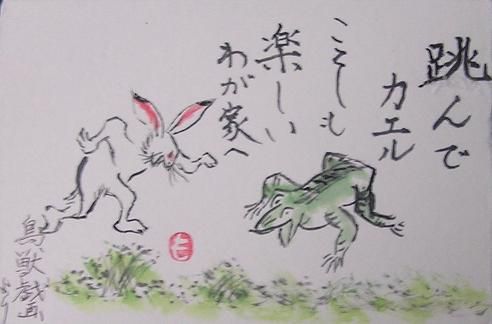 跳んで
カエル
ことしも
楽しい
わが家へ
鳥獣戯画
より